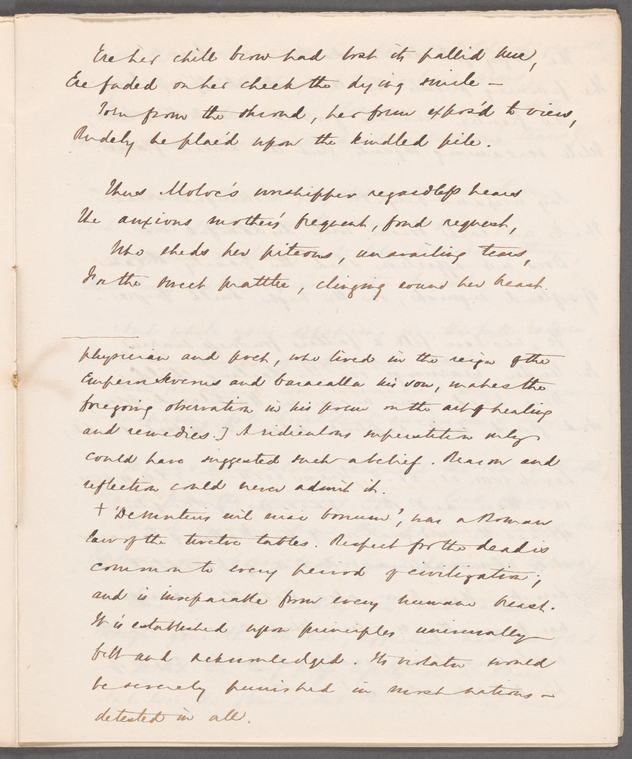 Ere her chill brow had lost its pallid hue,
Ere faded on her cheek the dying smile –
Torn from the shroud, her form expos'd to view,
Rudely he plac'd upon the kindled pile.
Thus Moloc's worshipper regardless hears
The anxious mother's frequent, fond request,
Who sheds her piteous, unavailing tears,
For the sweet prattler, clinging round her breast.
physician and poet, who lived in the reign of the
Emperor Severus and Caracalla his son, makes the
foregoing observation in his poem on the art of healing
and remedies.] A ridiculous superstition only
could have suggested such a belief. Reason and
reflection could never admit it.
+ 'De mortuis nil nisi bonum', was a Roman
law of the twelve tables. Respect for the dead is
common to every period of civilization,
and is inseparable from every humane breast.
It is established upon principles universally
felt and acknowledged. Its violator would
be severely punished in most nations –
detested in all.